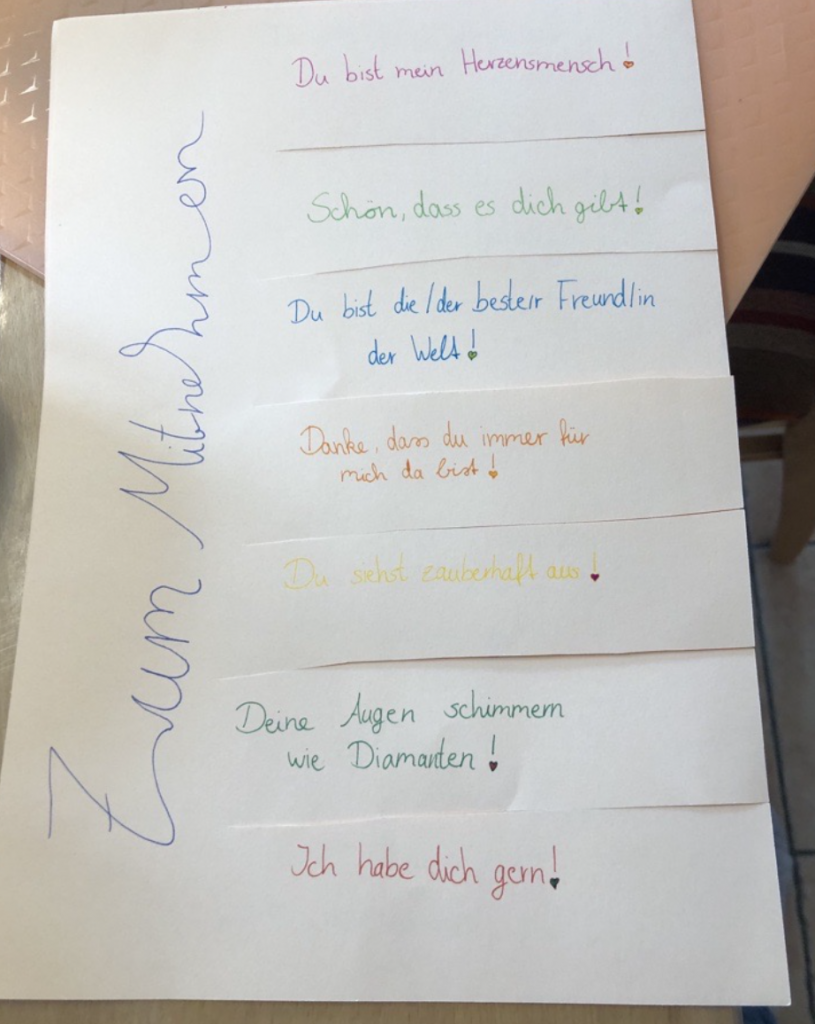 Zum Mitnehmen
Du bist mein Herzensmensch!
Schön, dass es dich gibt!
Du bist die/der beste/r Freund/in
der Welt!
Danke, dass du immer für
mich da bist!
Du siehst zauberhaft aus!
Deine Augen schimmern
wie Diamanten!
Ich habe dich gern!